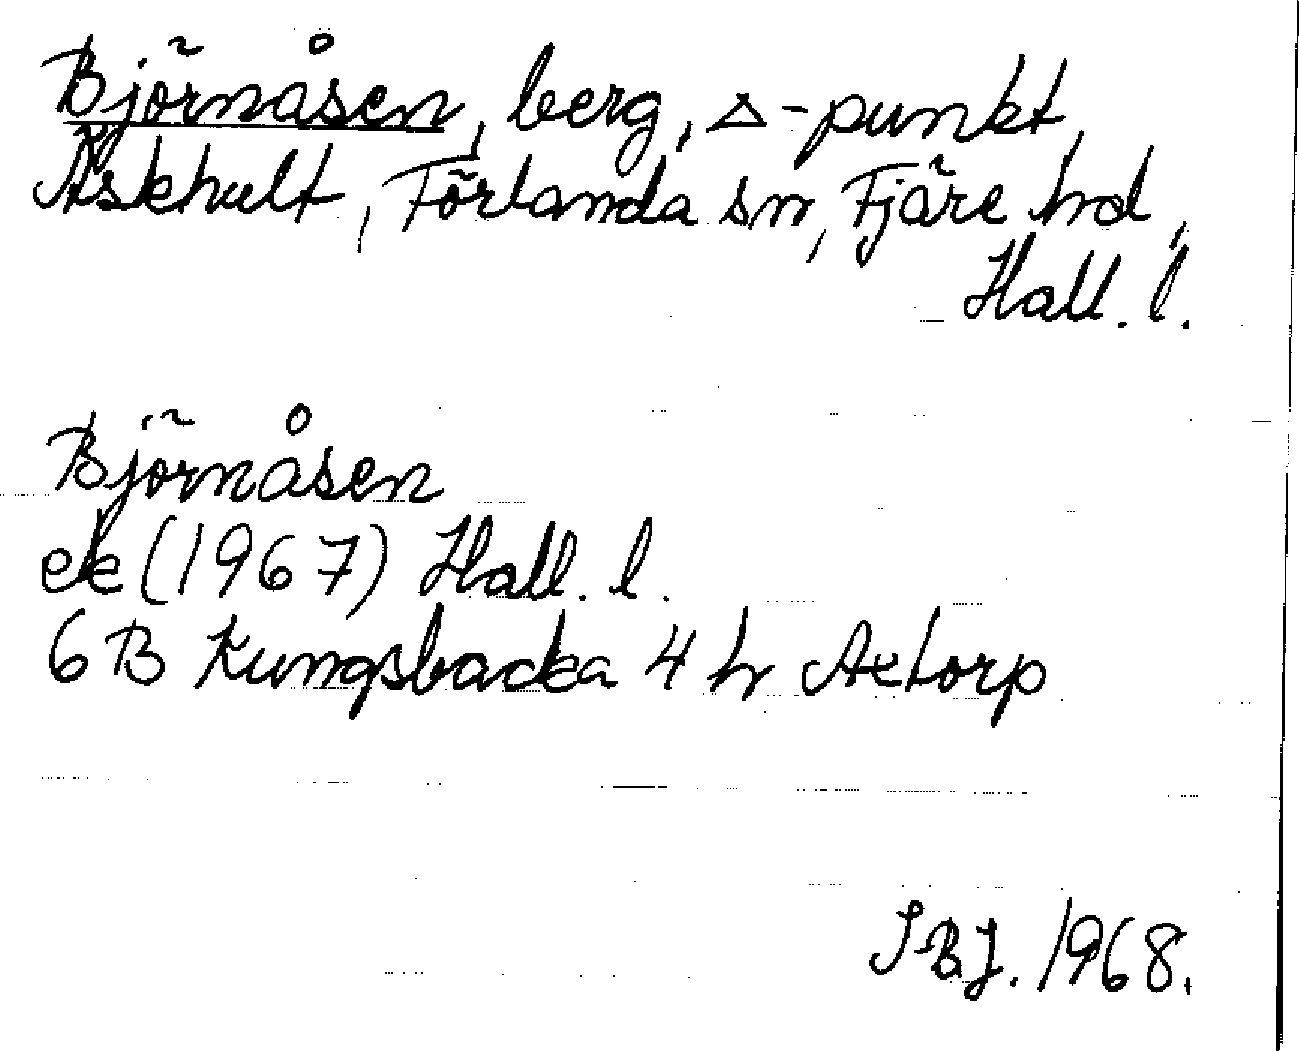 Björnåsen, berg, △-punkt,
Äskhult, Förlanda sn, Fjäre hd,
Hall. l.
Björnåsen
ek (1967) Hall. l.
6 B Kungsbacka 4 h Axtorp
SBJ. 1968.